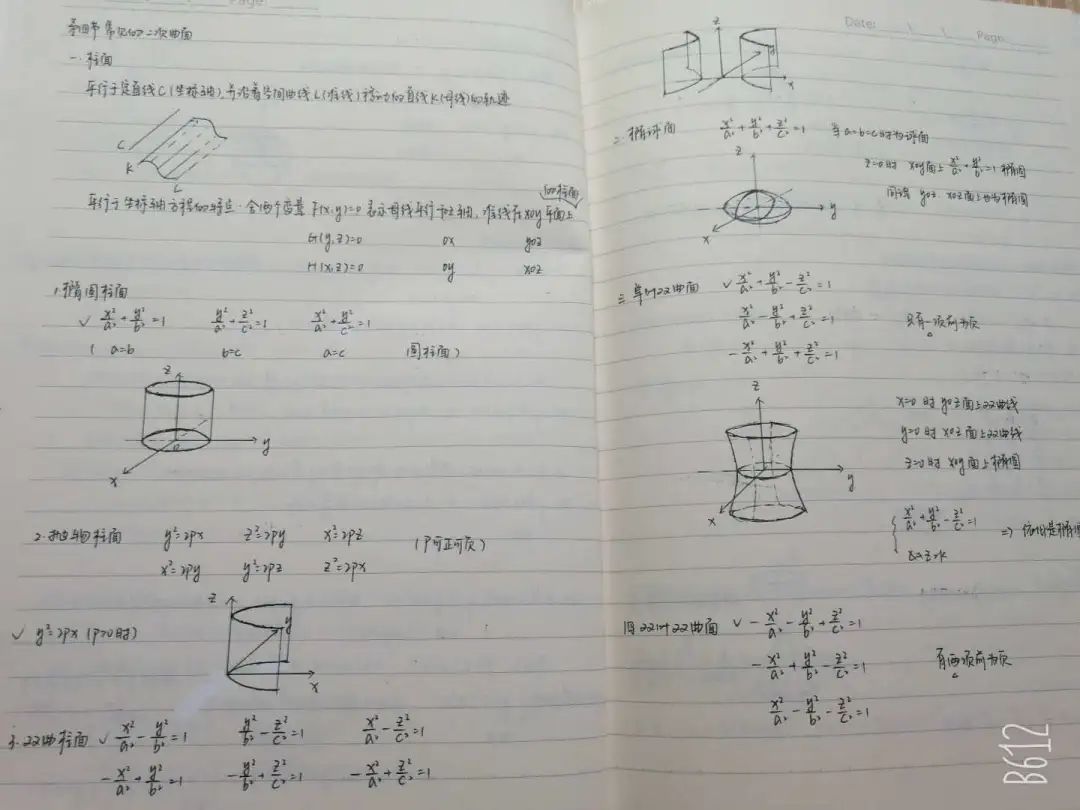 第四节 常见的二次曲面
一.柱面
平行于定直线C(坐标轴),并沿着空间曲线L(准线)移动的直线K(母线)的轨迹
C
K
L
平行于坐标轴方程的特点.含两个变量 F(x,y)=0 表示母线平行于z轴, 准线在xoy平面上的柱面
G(y,z)=0 ox yoz
H(x,z)=0 oy xoz
1.椭圆柱面
✓ x²/a²+y²/b²=1 y²/b²+z²/c²=1 x²/a²+y²/c²=1
( a=b b=c a=c 圆柱面)
z
o
y
x
2.抛物柱面 y²=2px z²=2py x²=2pz (P可正可负)
x²=2py y²=2pz z²=2px
✓ y²=2px (p>0时)
z
y
x
3.双曲柱面 ✓ x²/a²-y²/b²=1 y²/b²-z²/c²=1 x²/a²-z²/c²=1
-x²/a²+y²/b²=1 -y²/b²+z²/c²=1 -x²/a²+z²/c²=1
Date: \ \ Page
z
y
x
二.椭球面 x²/a²+y²/b²+z²/c²=1 当a=b=c时为球面
z=0时 xoy面上 x²/a²+y²/b²=1 椭圆
同理 yoz. xoz面上也为椭圆
z
y
x
三 单叶双曲面 ✓ x²/a²+y²/b²-z²/c²=1
x²/a²-y²/b²+z²/c²=1 只有一项前为负
-x²/a²+y²/b²+z²/c²=1
x=0时 yoz面上双曲线
y=0时 xoz面上双曲线
z=0时 xoy面上椭圆
z
y
x
x²/a²+y²/b²-z²/c²=1
⇒ 是椭圆
四 双叶双曲面 ✓ -x²/a²-y²/b²+z²/c²=1
-x²/a²+y²/b²-z²/c²=1 有两项前为负
x²/a²-y²/b²-z²/c²=1
B612